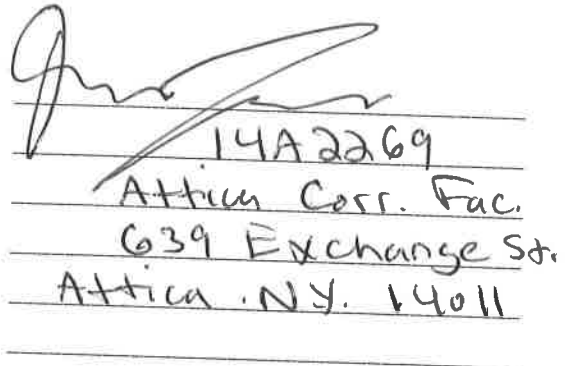 14A2269
Attica Corr. Fac.
639 Exchange St.
Attica . NY. 14011